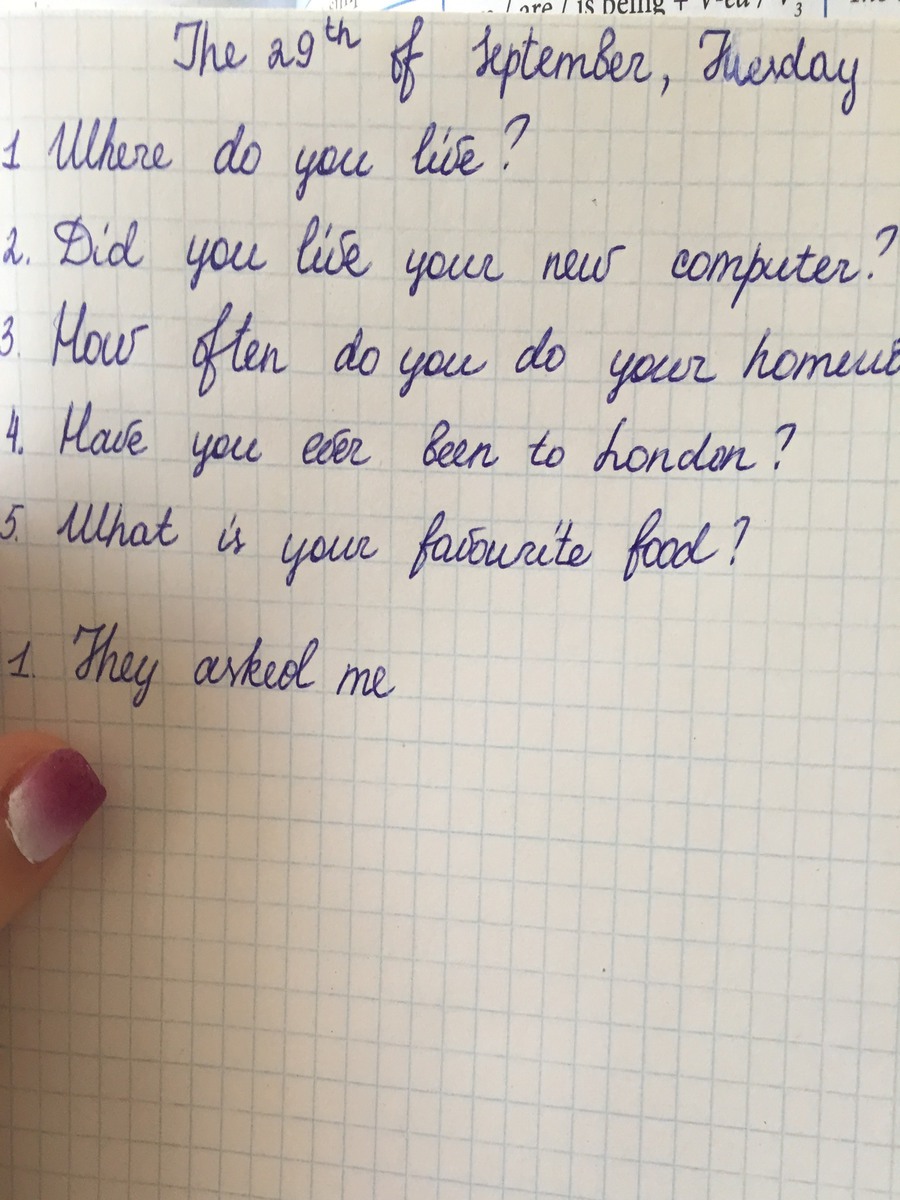 / are / is being + V-ed / V3
The 29th of September, Tuesday
1 Where do you live?
2. Did you live your new computer?
3. How often do you do your homewo
4. Have you ever been to London?
5. What is your favourite food?
1. They asked me